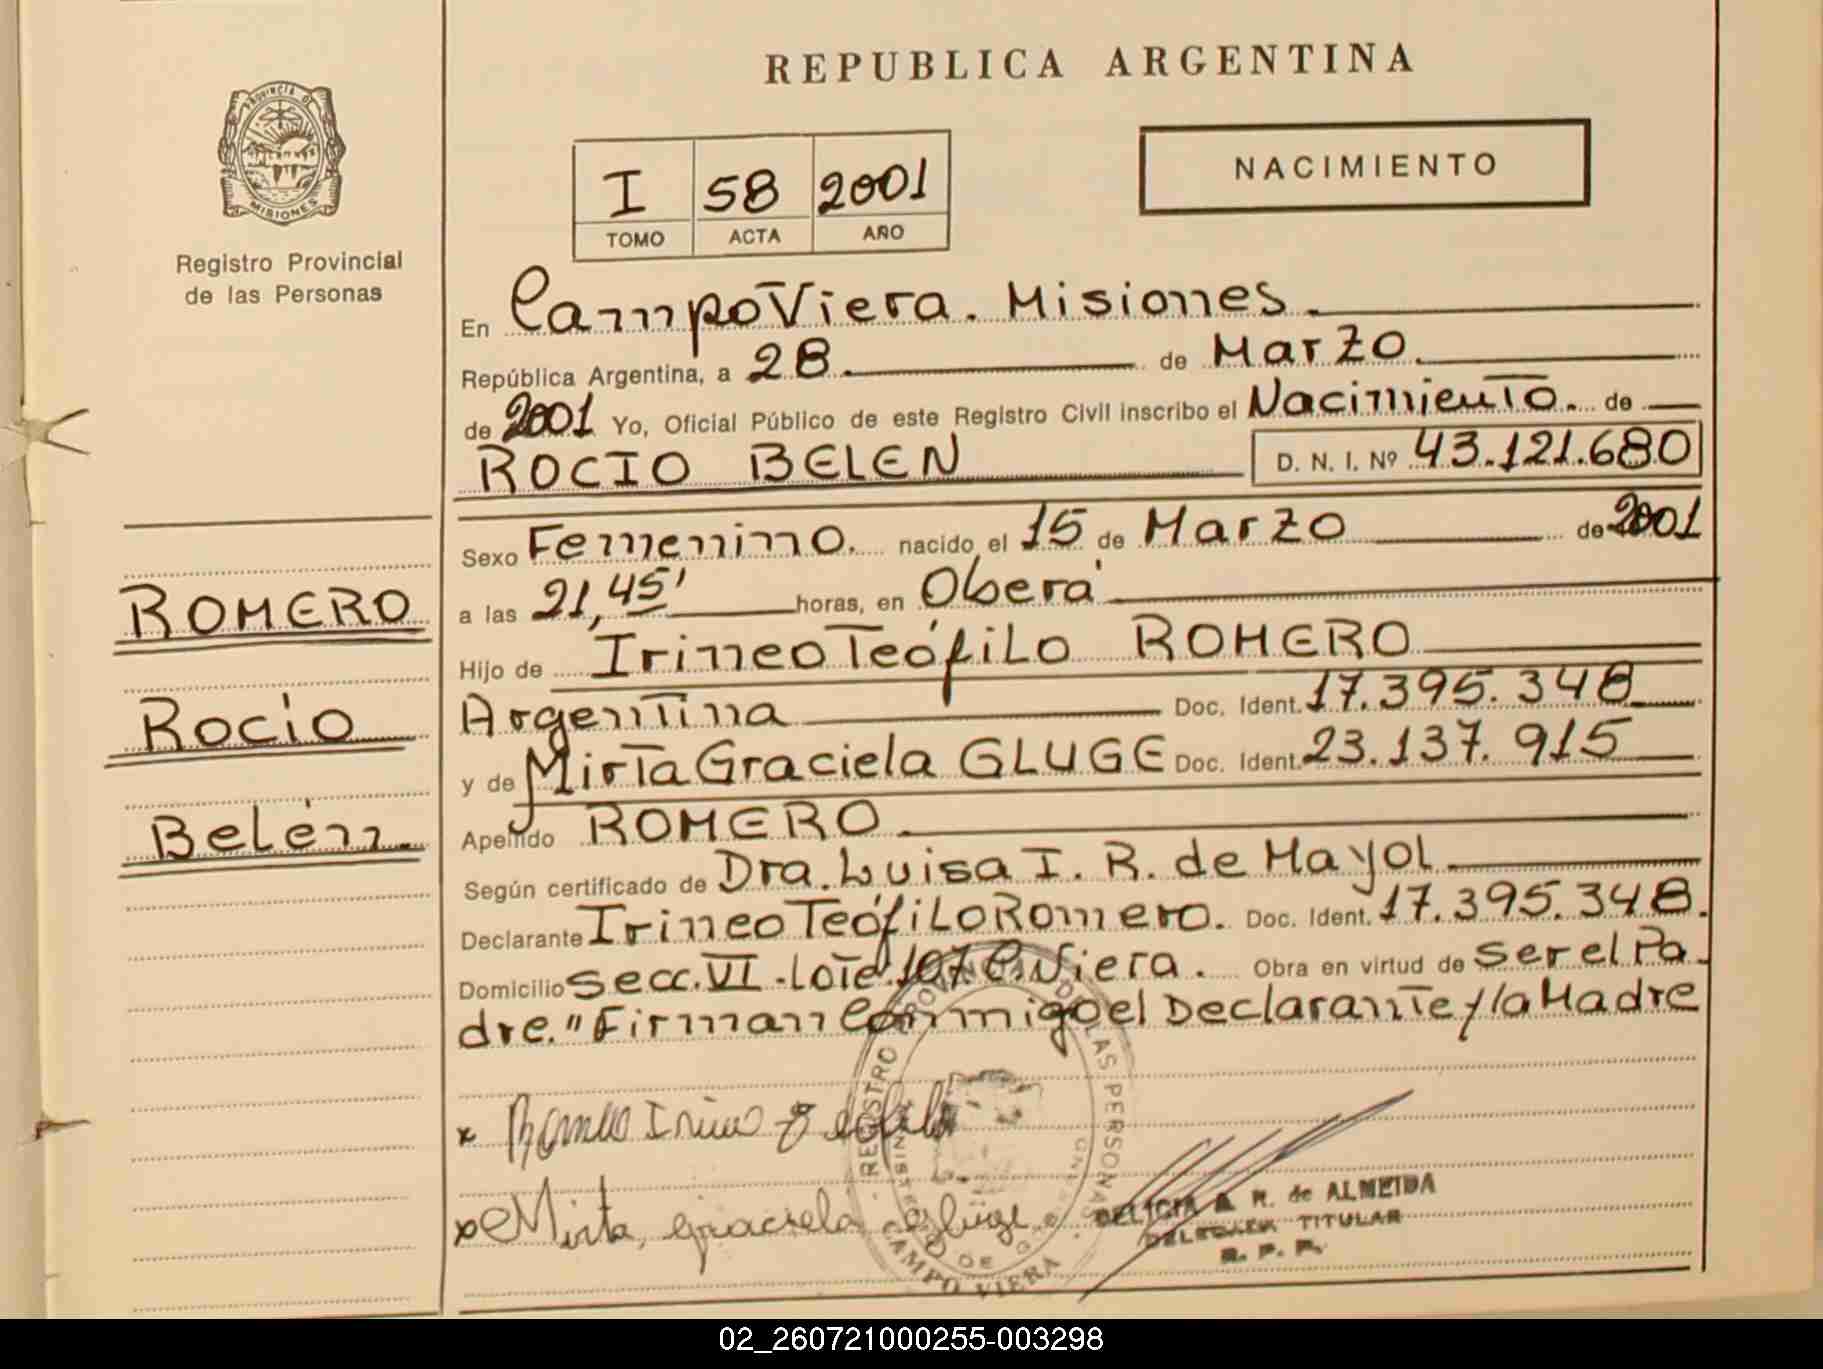 REPUBLICA ARGENTINA
PROVINCIA DE
MISIONES
Registro Provincial
de las Personas
I 58 2001
TOMO ACTA AÑO
NACIMIENTO
En Campo Viera. Misiones.
República Argentina, a 28. de Marzo.
de 2001 Yo, Oficial Público de este Registro Civil inscribo el Nacimiento. de
ROCIO BELEN D. N. I. Nº 43.121.680
Sexo Femenino. nacido el 15 de Marzo de 2001
a las 21,45' horas, en Oberá
Hijo de Irineo Teófilo ROMERO
Argentina Doc. Ident. 17.395.348
y de Mirta Graciela GLUGE Doc. Ident. 23.137.915
Apellido ROMERO.
Según certificado de Dra. Luisa I. R. de Mayol.
Declarante Irineo Teófilo Romero. Doc. Ident. 17.395.348.
Domicilio secc. VI - lote 107 C. Viera. Obra en virtud de ser el Pa.
dre." Firman Conmigo el Declarante y la Madre
ROMERO
Rocío
Belén.
x Romero Irineo Teofilo
x Mirta, graciela Gluge
REGISTRO PROVINCIAL DE LAS PERSONAS
MINISTERIO DE GOB
CAMPO VIERA
DELICIA A. R. de ALMEIDA
DELEGADA TITULAR
R. P. P.
02_260721000255-003298